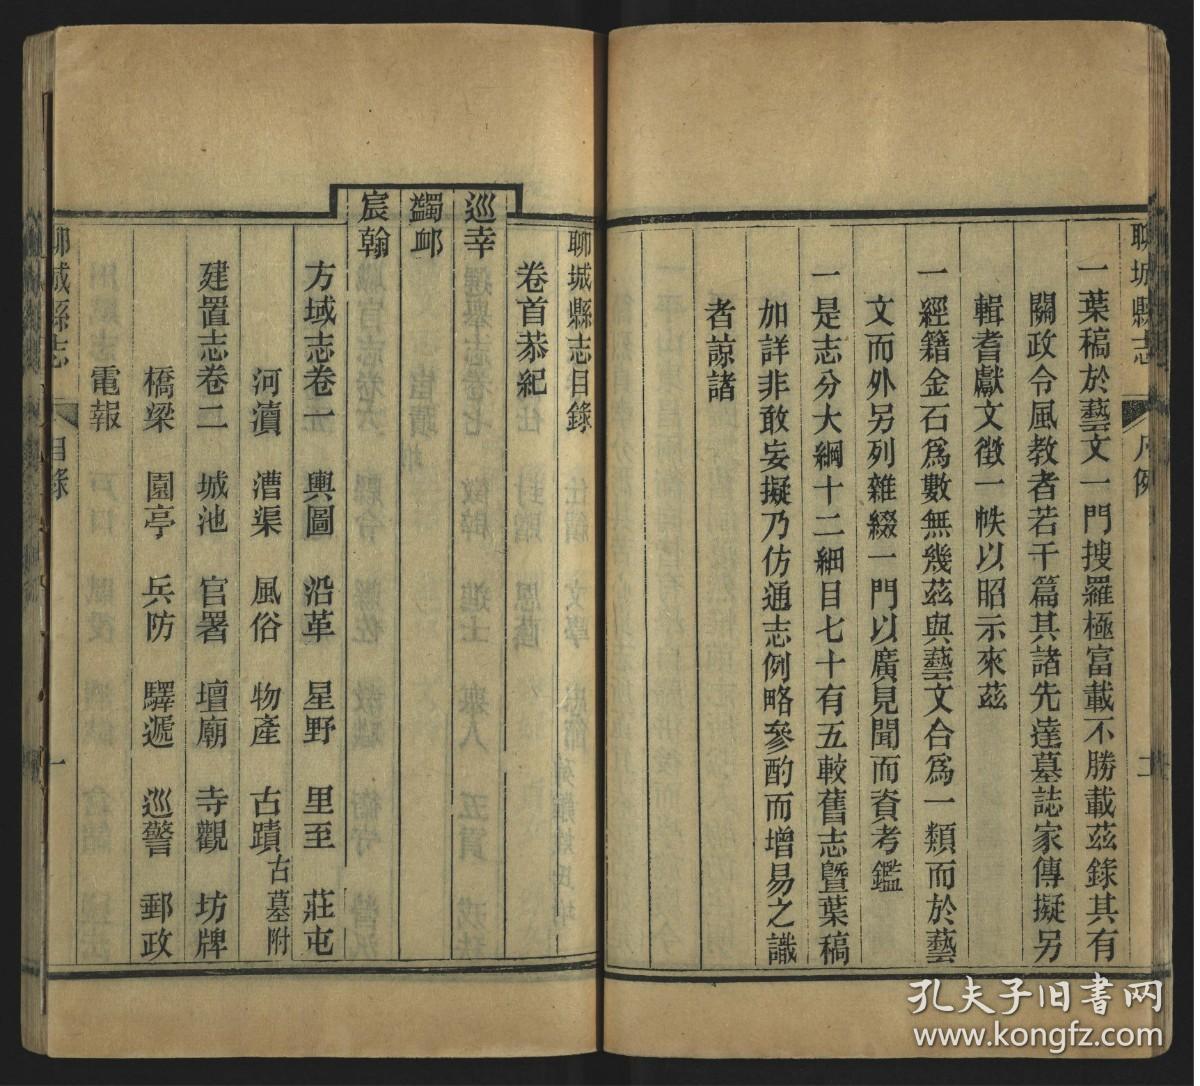 聊城縣志
凡例
二
一葉稿於藝文一門搜羅極富載不勝載茲錄其有
關政令風教者若干篇其諸先達墓誌家傳擬另
輯耆獻文徵一帙以昭示來茲
一經籍金石爲數無幾茲與藝文合爲一類而於藝
文而外另列雜綴一門以廣見聞而資考鑑
一是志分大綱十二細目七十有五較舊志暨葉稿
加詳非敢妄擬乃仿通志例略參酌而增易之識
者諒諸
聊城縣志目錄
卷首恭紀
巡幸
蠲卹
宸翰
方域志卷一 輿圖 沿革 星野 里至 莊屯
河瀆 漕渠 風俗 物產 古蹟古墓附
建置志卷二 城池 官署 壇廟 寺觀 坊牌
橋梁 園亭 兵防 驛遞 巡警 郵政
電報
聊城縣志
目錄
一
孔夫子旧书网
www.kongfz.com